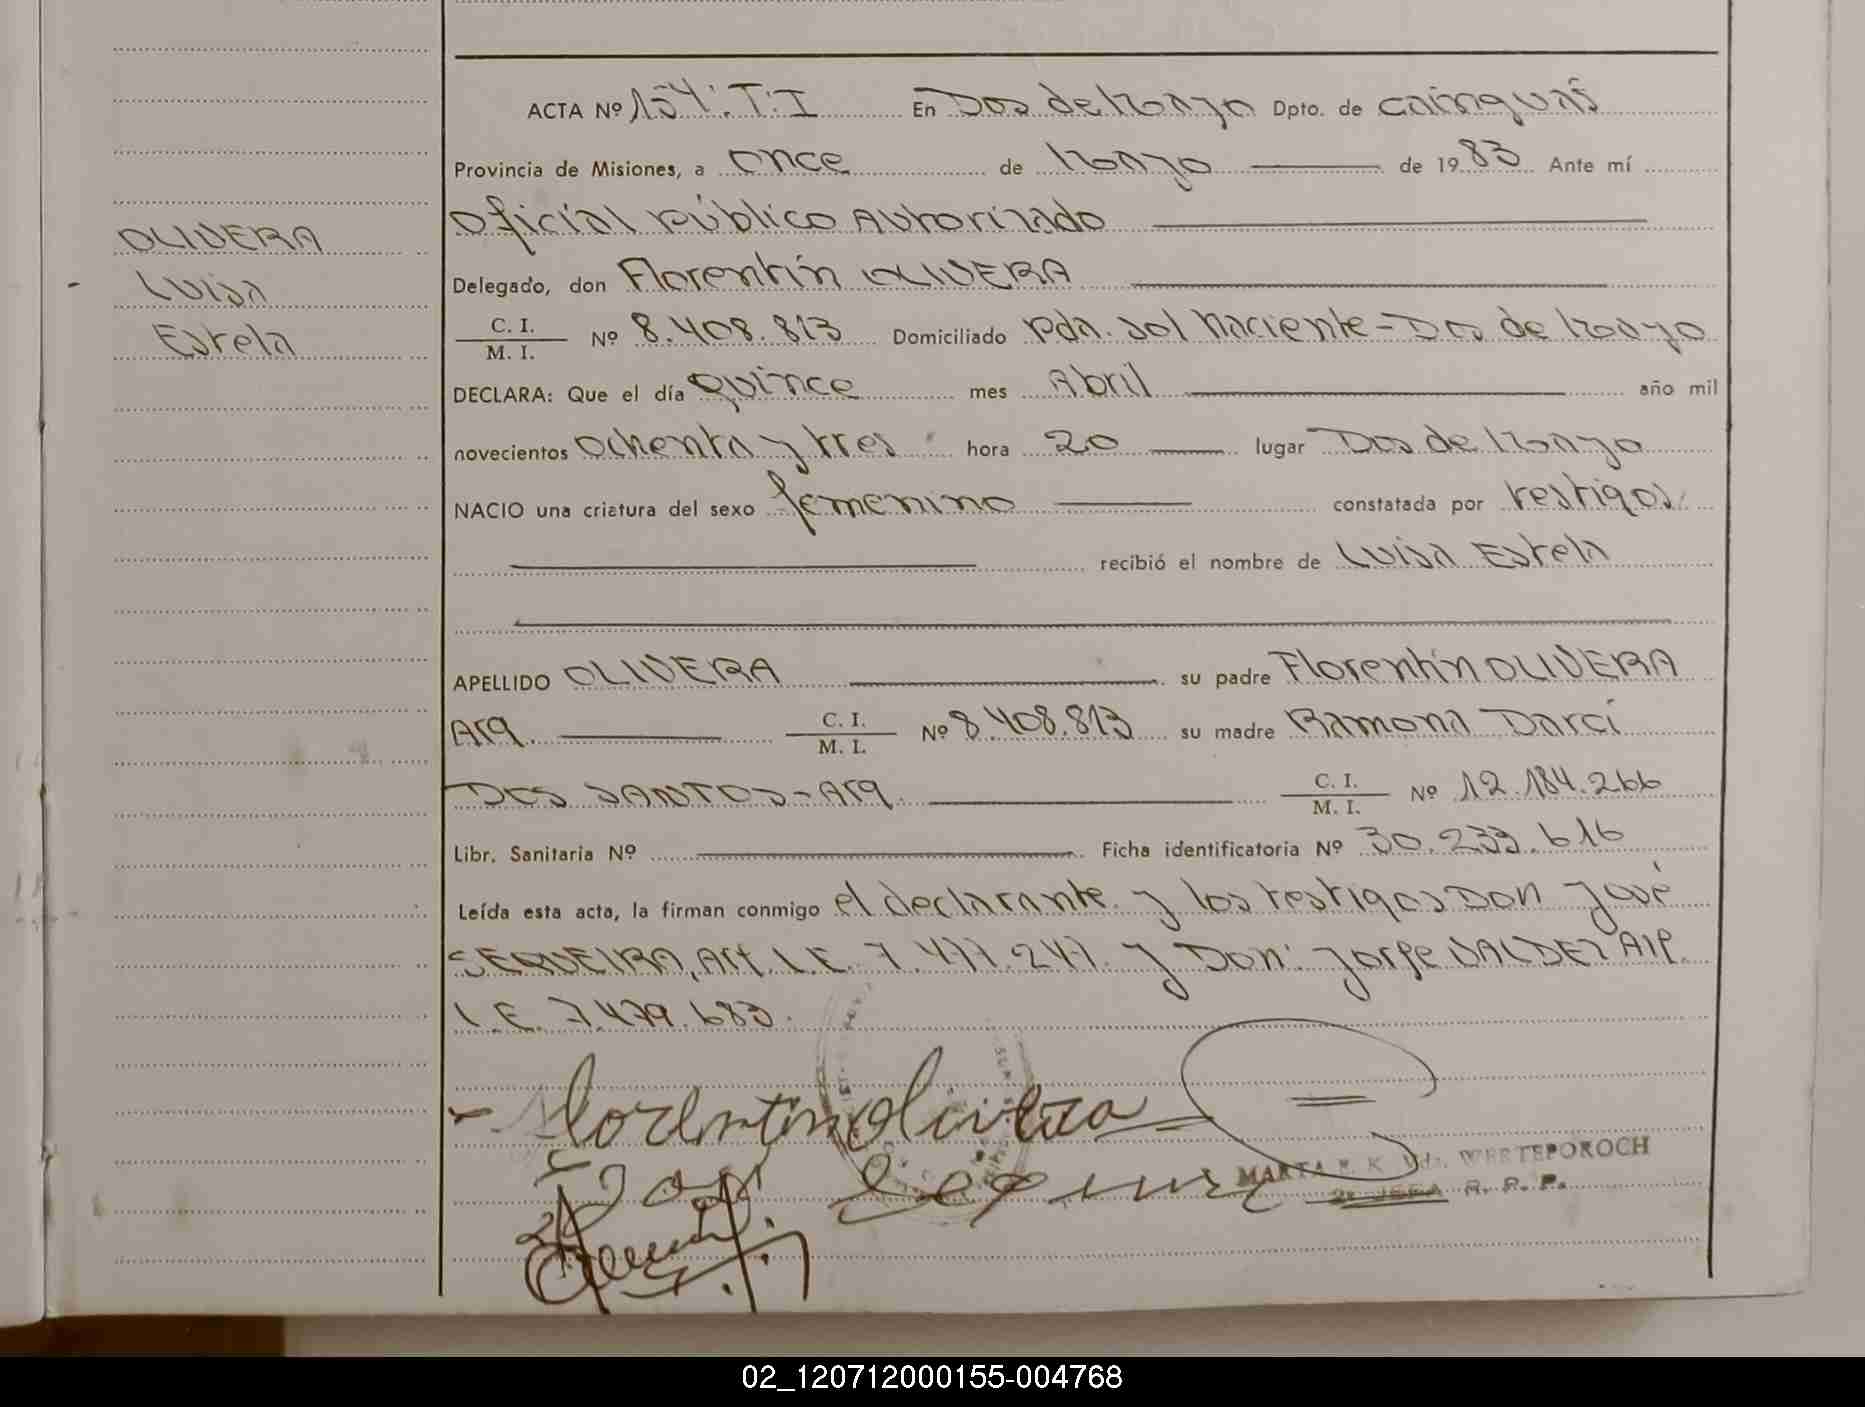 ACTA Nº 154. T. I En Dos de Mayo Dpto. de cainguás
Provincia de Misiones, a once de Mayo de 1983 Ante mí
Oficial Público Autorizado
OLIVERA
Luisa
Estela
Delegado, don Florentín OLIVERA
C. I.
M. I. Nº 8.408.813 Domiciliado Pda. Sol Naciente - Dos de Mayo
DECLARA: Que el día quince mes Abril año mil
novecientos ochenta y tres hora 20 lugar Dos de Mayo
NACIO una criatura del sexo femenino constatada por testigos
recibió el nombre de Luisa Estela
APELLIDO OLIVERA su padre Florentín OLIVERA
Arg. C. I.
M. I. Nº 8.408.813 su madre Ramona Darci
DOS SANTOS - Arg. C. I.
M. I. Nº 12.184.266
Libr. Sanitaria Nº Ficha identificatoria Nº 30.233.616
Leída esta acta, la firman conmigo el declarante y los testigos Don José
SEQUEIRA, Arg. L.E. 7.477.247. y Don: Jorge VALDEZ Arg.
L.E. 7.479.683.
Florentin Olivera
MARTA E. K. Vda. WERTEPOROCH
2ª JEFA R. P. P.
02_120712000155-004768